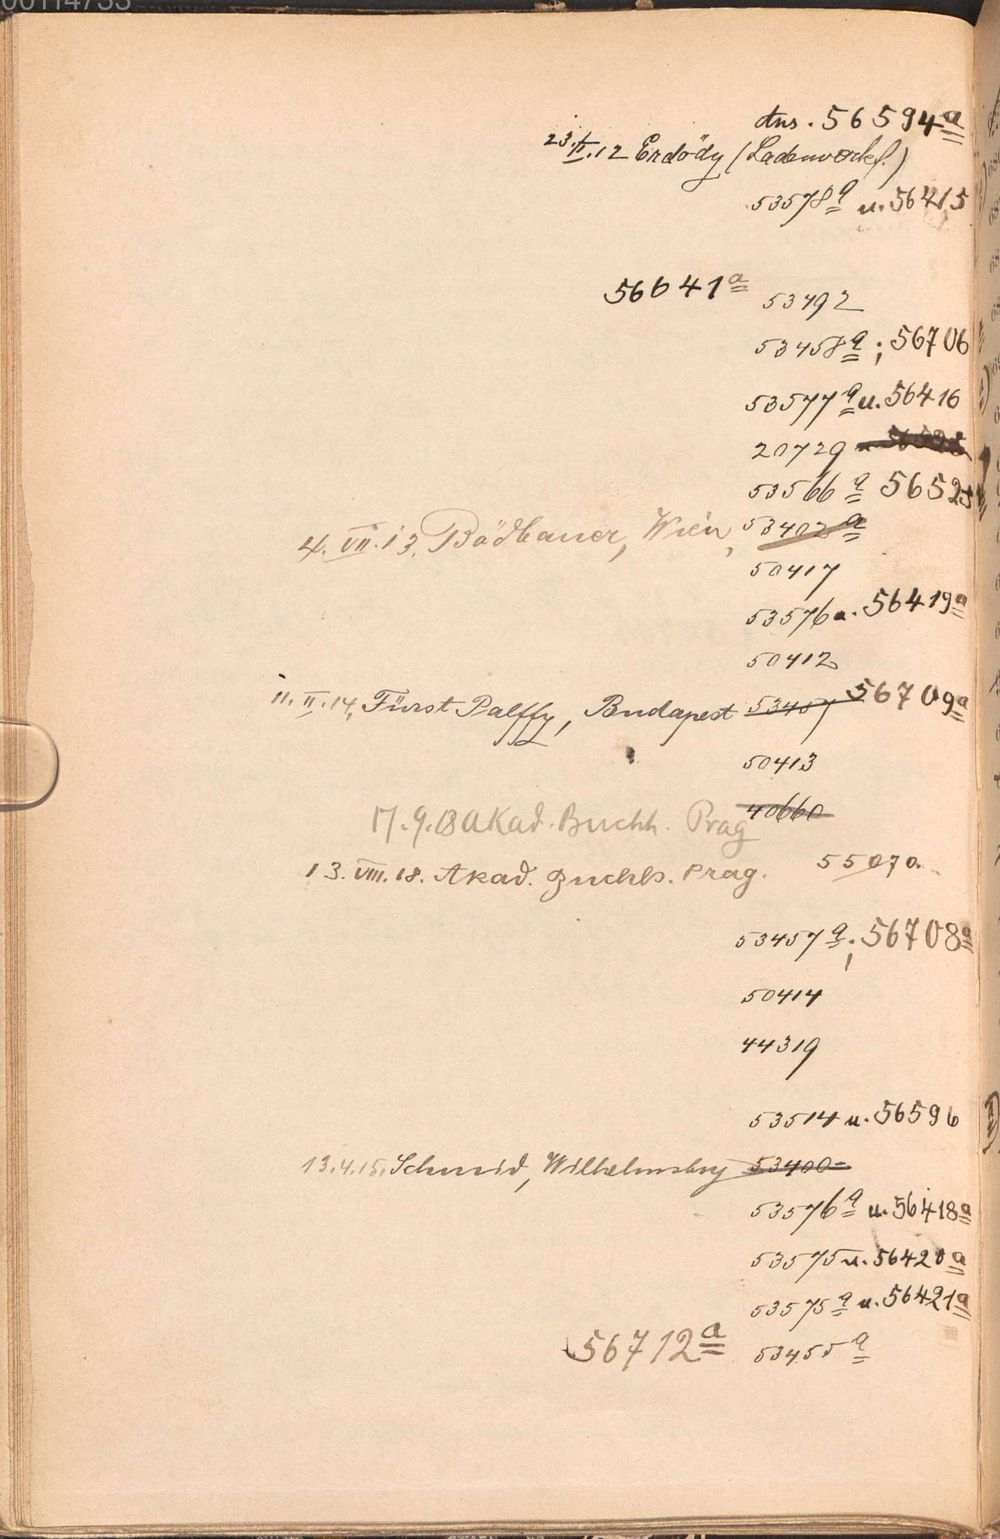 00114733
Ans. 56594a
23.II.12 Erdödy (Ladenverkf.)
53578a u. 56415
56641a 53492
53458a; 56706
53577a u. 56416
20729
53566a 56525
4. VII. 13. Bödbauer, Wien, 53402a
50417
53576 u. 56419a
50412
11. II. 14, Fürst Palffy, Budapest 53407 56709a
50413
17.9.13 Akad. Buchh. Prag 40660
13. VIII. 18. Akad. Buchh. Prag. 55070.
53457a; 56708a
50414
44319
53514 u. 56596
13.4.15. Schmid, Wilhelmsbg 53400
53576a u. 56418a
53575 u. 56420a
53575a u. 56421a
56712a 53455a